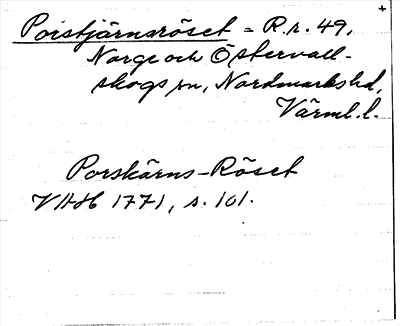 Poistjärnsröset = R.r. 49,
Norge och Östervall-
skogs sn, Nordmarks hd,
Värml. l.
Porskärns-Röset
VHH 1771, s. 101.